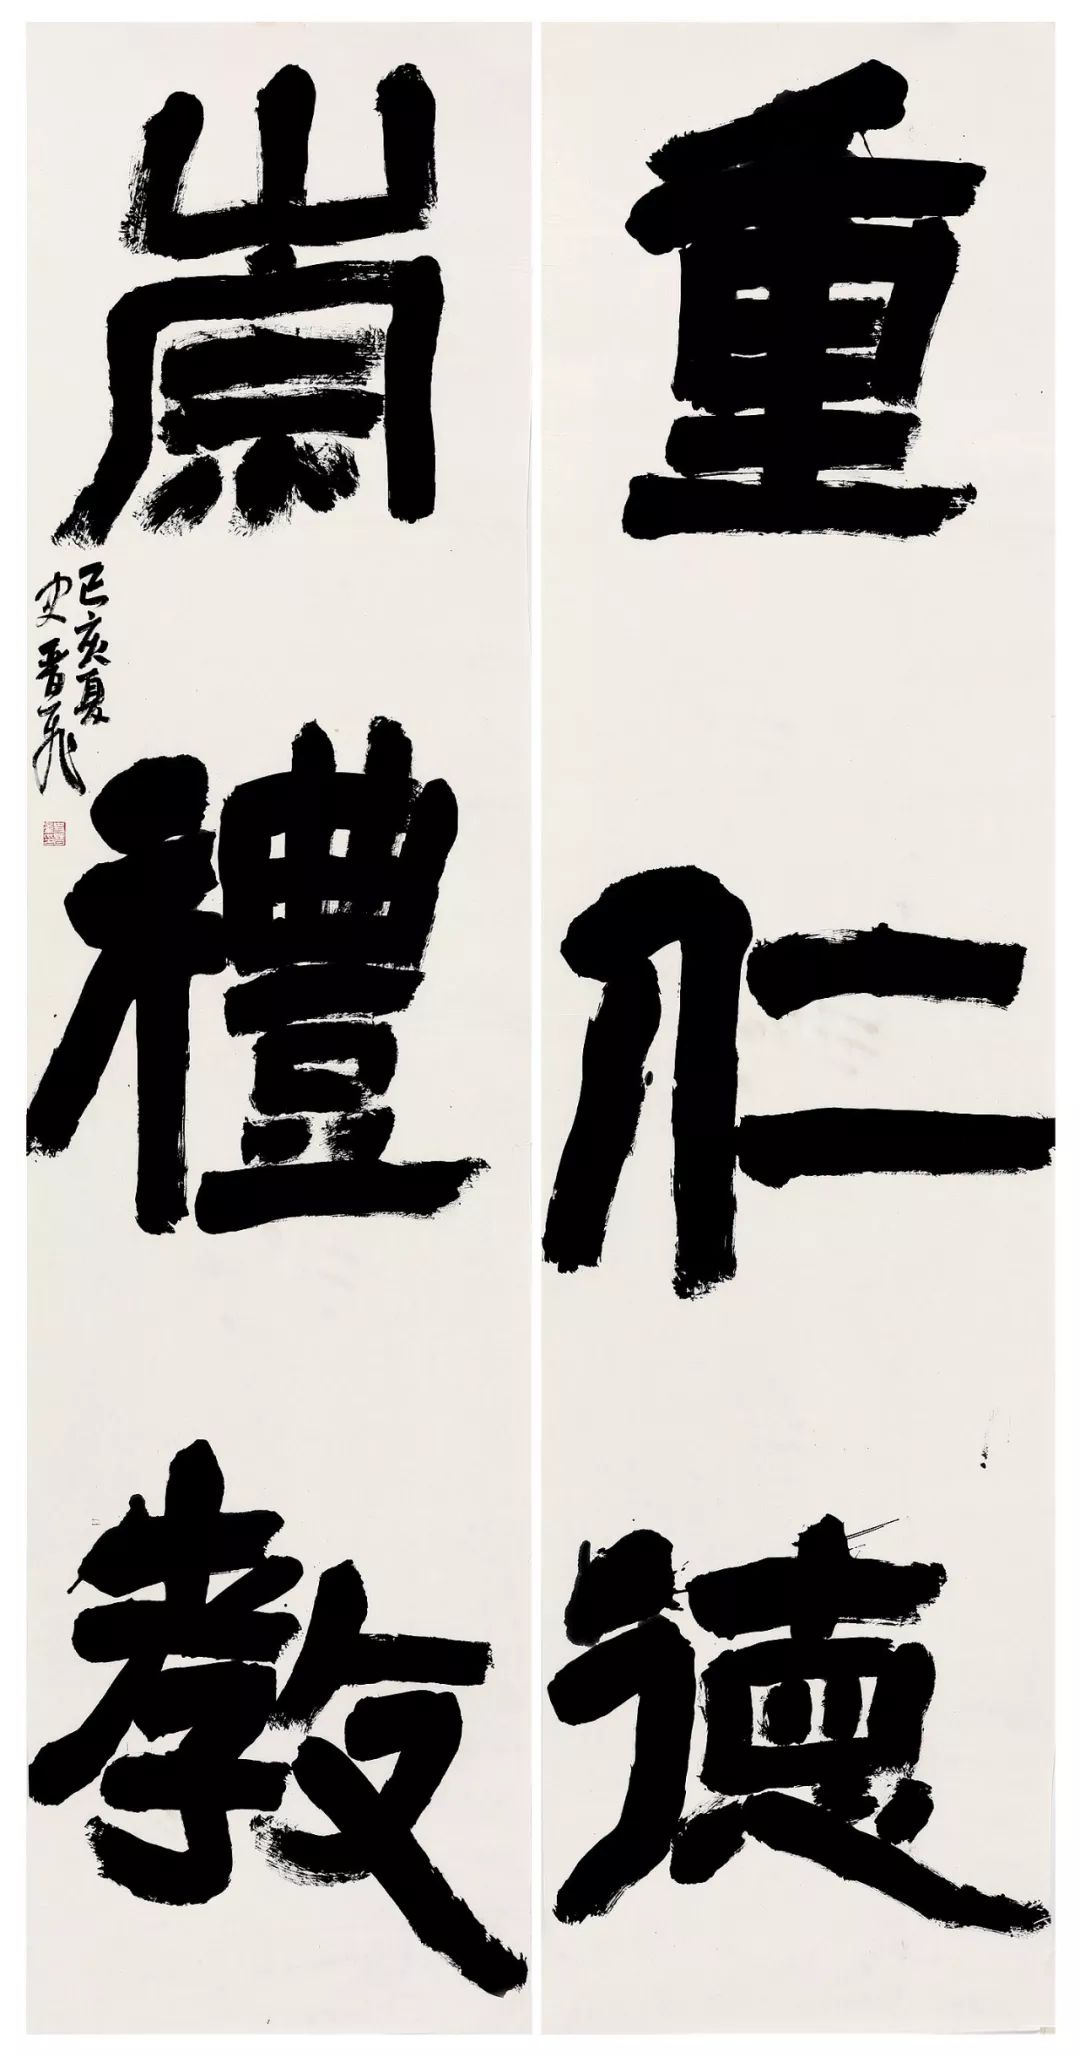 重仁德
崇禮教
己亥夏
史晋飛